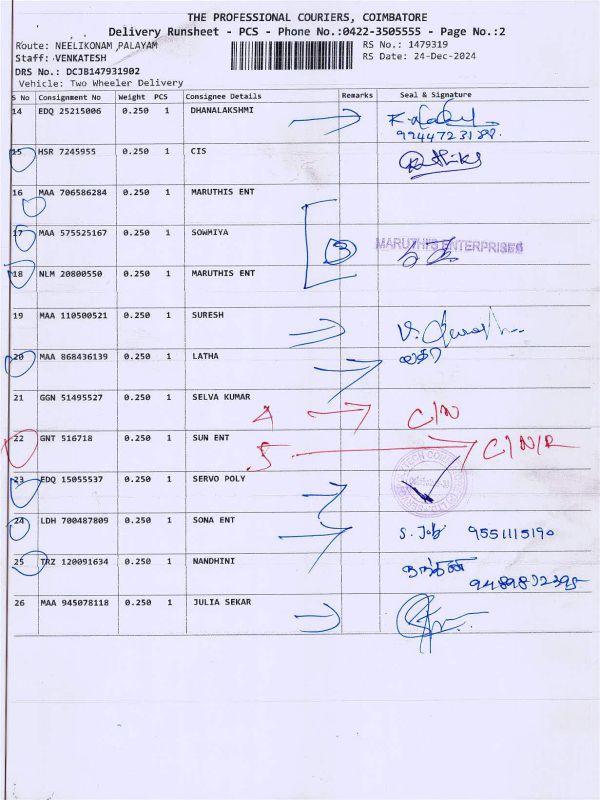 THE PROFESSIONAL COURIERS, COIMBATORE
Delivery Runsheet - PCS - Phone No.:0422-3505555 - Page No.:2
Route: NEELIKONAM PALAYAM RS No.: 1479319
Staff: VENKATESH RS Date: 24-Dec-2024
DRS No.: DCJB147931902
Vehicle: Two Wheeler Delivery
S No Consignment No Weight PCS Consignee Details Remarks Seal & Signature
14 EDQ 25215006 0.250 1 DHANALAKSHMI
15 HSR 7245955 0.250 1 CIS
16 MAA 706586284 0.250 1 MARUTHIS ENT
17 MAA 575525167 0.250 1 SOWMIYA 3 MARUTHIS ENTERPRISES
18 NLM 20800550 0.250 1 MARUTHIS ENT
19 MAA 110500521 0.250 1 SURESH
20 MAA 868436139 0.250 1 LATHA லதா
21 GGN 51495527 0.250 1 SELVA KUMAR A C/N
22 GNT 516718 0.250 1 SUN ENT 5 C/N/R
23 EDQ 15055537 0.250 1 SERVO POLY
24 LDH 700487809 0.250 1 SONA ENT S. Job 9551115190
25 TRZ 120091634 0.250 1 NANDHINI
26 MAA 945078118 0.250 1 JULIA SEKAR